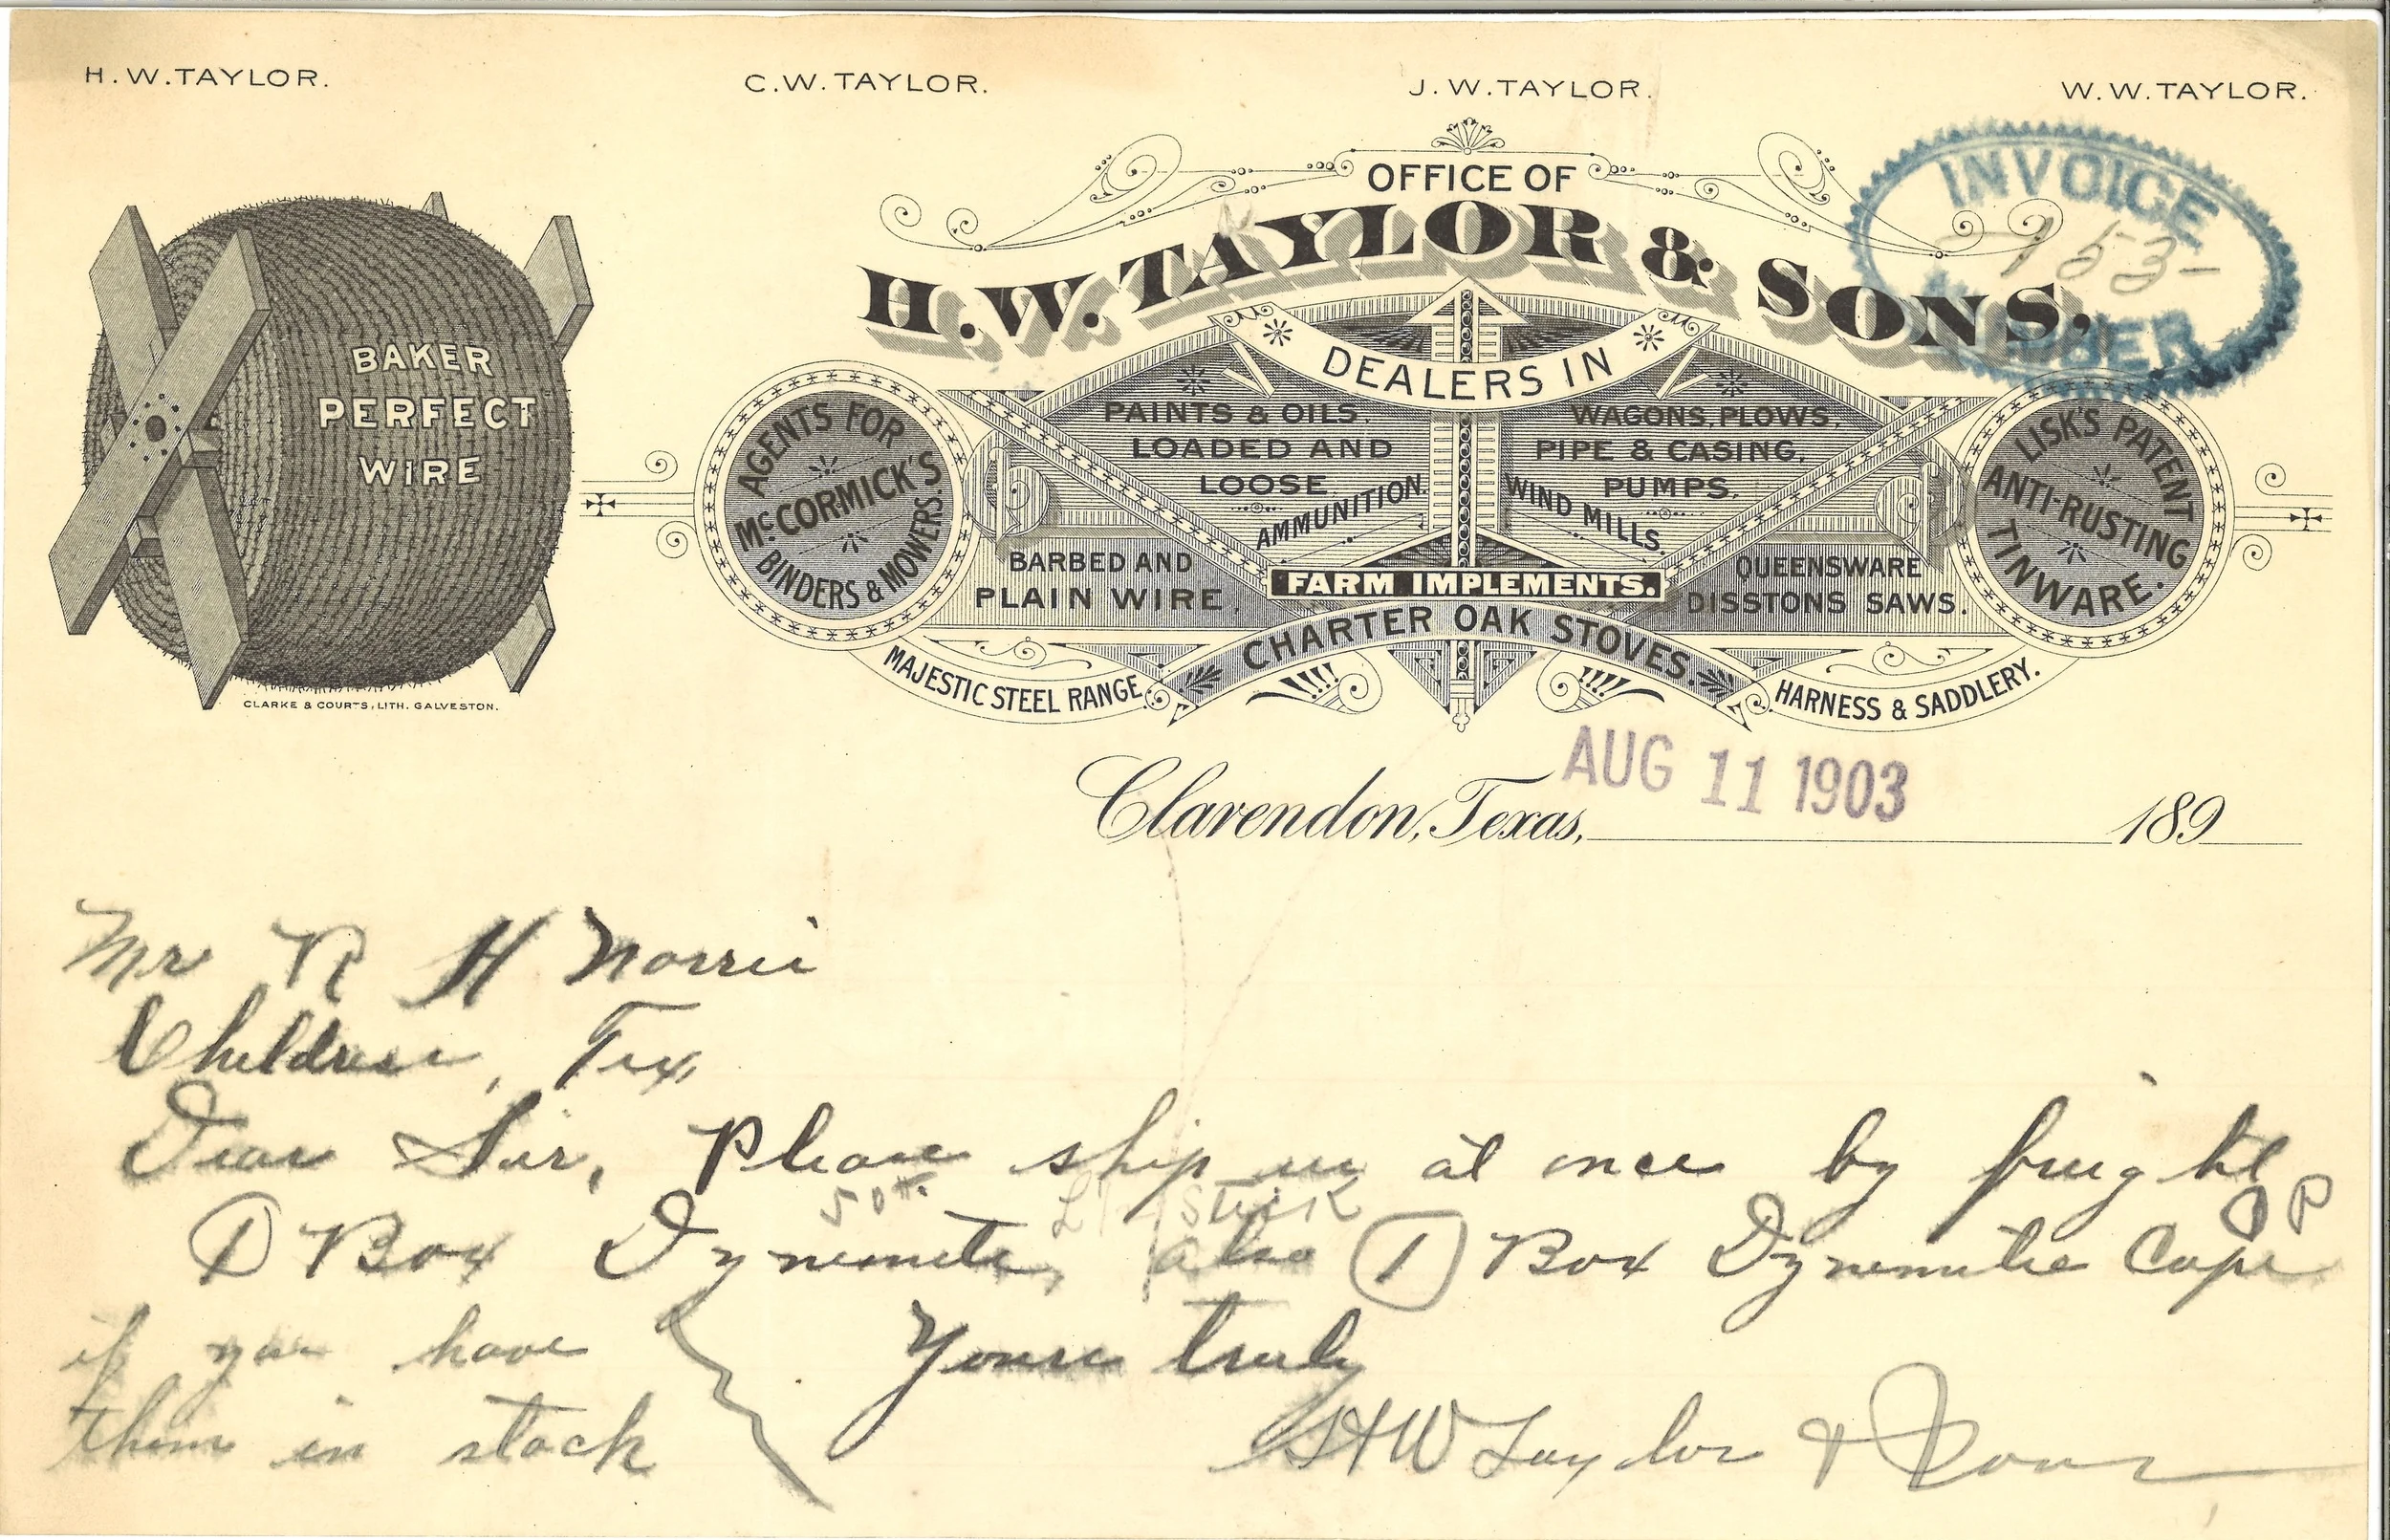 H.W.TAYLOR. C.W.TAYLOR. J.W.TAYLOR. W.W.TAYLOR.
OFFICE OF
H.W. TAYLOR & SONS,
INVOICE
953-
DEALERS IN
BAKER
PERFECT
WIRE
CLARKE & COURTS, LITH. GALVESTON.
AGENTS FOR
McCORMICK'S
BINDERS & MOWERS.
PAINTS & OILS.
LOADED AND
LOOSE
AMMUNITION.
WAGONS, PLOWS,
PIPE & CASING,
PUMPS,
WIND MILLS.
LISK'S PATENT
ANTI-RUSTING
TINWARE.
BARBED AND
PLAIN WIRE,
FARM IMPLEMENTS.
QUEENSWARE
DISSTONS SAWS.
CHARTER OAK STOVES.
MAJESTIC STEEL RANGE,
HARNESS & SADDLERY.
AUG 11 1903
Clarendon, Texas, 189
Mr R H Norris
Childress, Tex,
Dear Sir, Please ship us at once by freight
50#
Stick
1 Box Dynemite, also 1 Box Dynemite Caps
if you have
them in stock
Yours truly
H W Taylor & Sons